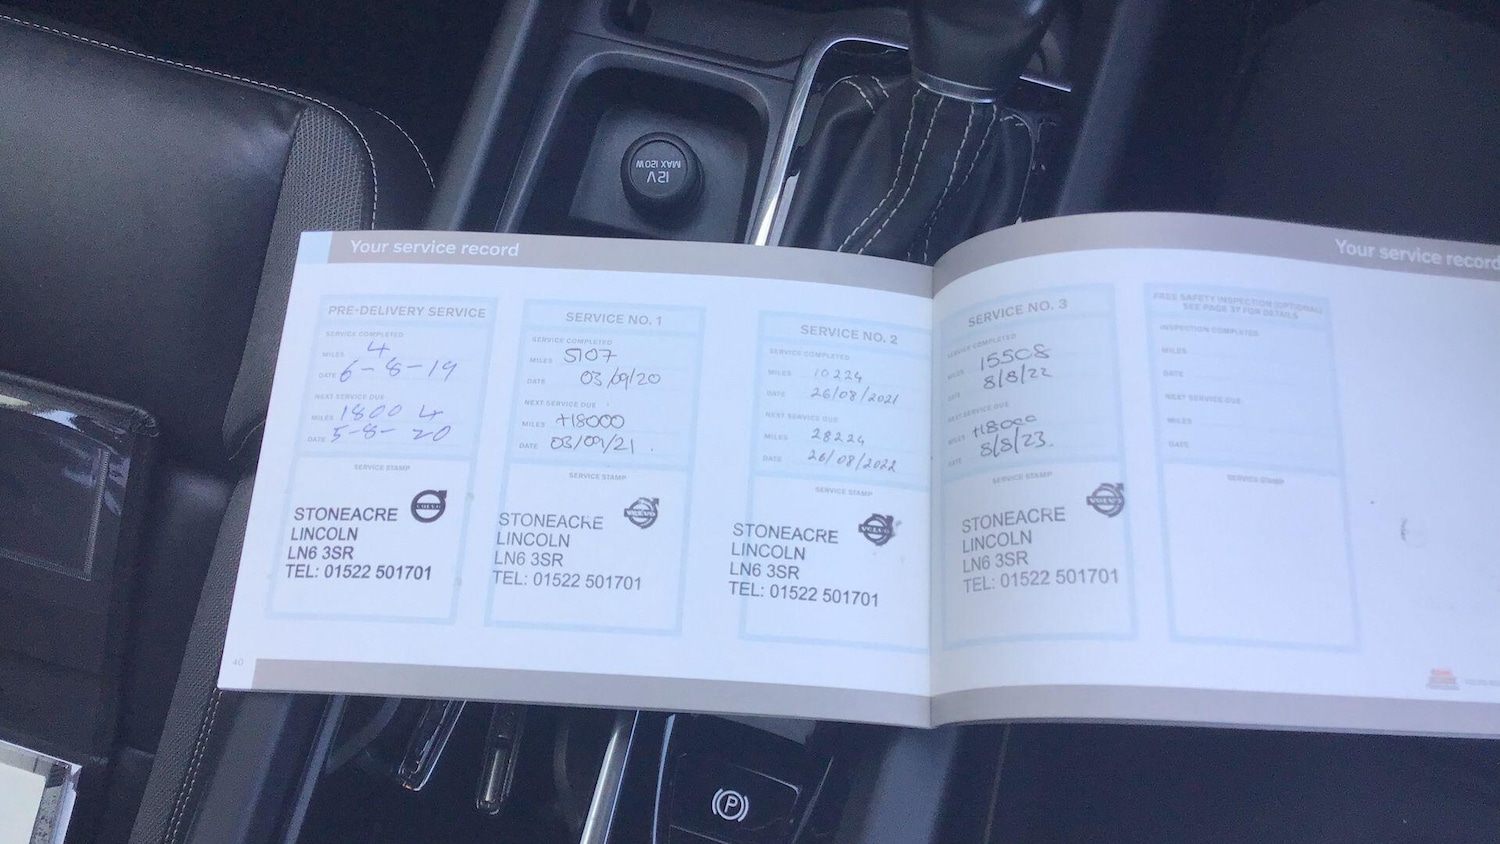 12V
MAX 120W
Your service record
PRE-DELIVERY SERVICE
SERVICE COMPLETED
MILES 4
DATE 6-8-19
NEXT SERVICE DUE
MILES 1800 4
DATE 5-8-20
SERVICE STAMP
VOLVO
STONEACRE
LINCOLN
LN6 3SR
TEL: 01522 501701
SERVICE NO. 1
SERVICE COMPLETED
MILES 5107
DATE 03/09/20
NEXT SERVICE DUE
MILES +18000
DATE 03/09/21.
SERVICE STAMP
VOLVO
STONEACRE
LINCOLN
LN6 3SR
TEL: 01522 501701
SERVICE NO. 2
SERVICE COMPLETED
MILES 10224
DATE 26/08/2021
NEXT SERVICE DUE
MILES 28224
DATE 26/08/2022
SERVICE STAMP
VOLVO
STONEACRE
LINCOLN
LN6 3SR
TEL: 01522 501701
40
Your service record
SERVICE NO. 3
SERVICE COMPLETED
MILES 15508
DATE 8/8/22
NEXT SERVICE DUE
MILES +18000
DATE 8/8/23.
SERVICE STAMP
VOLVO
STONEACRE
LINCOLN
LN6 3SR
TEL: 01522 501701
FREE SAFETY INSPECTION (OPTIONAL)
SEE PAGE 37 FOR DETAILS
INSPECTION COMPLETED
MILES
DATE
NEXT SERVICE DUE
MILES
DATE
SERVICE STAMP
P